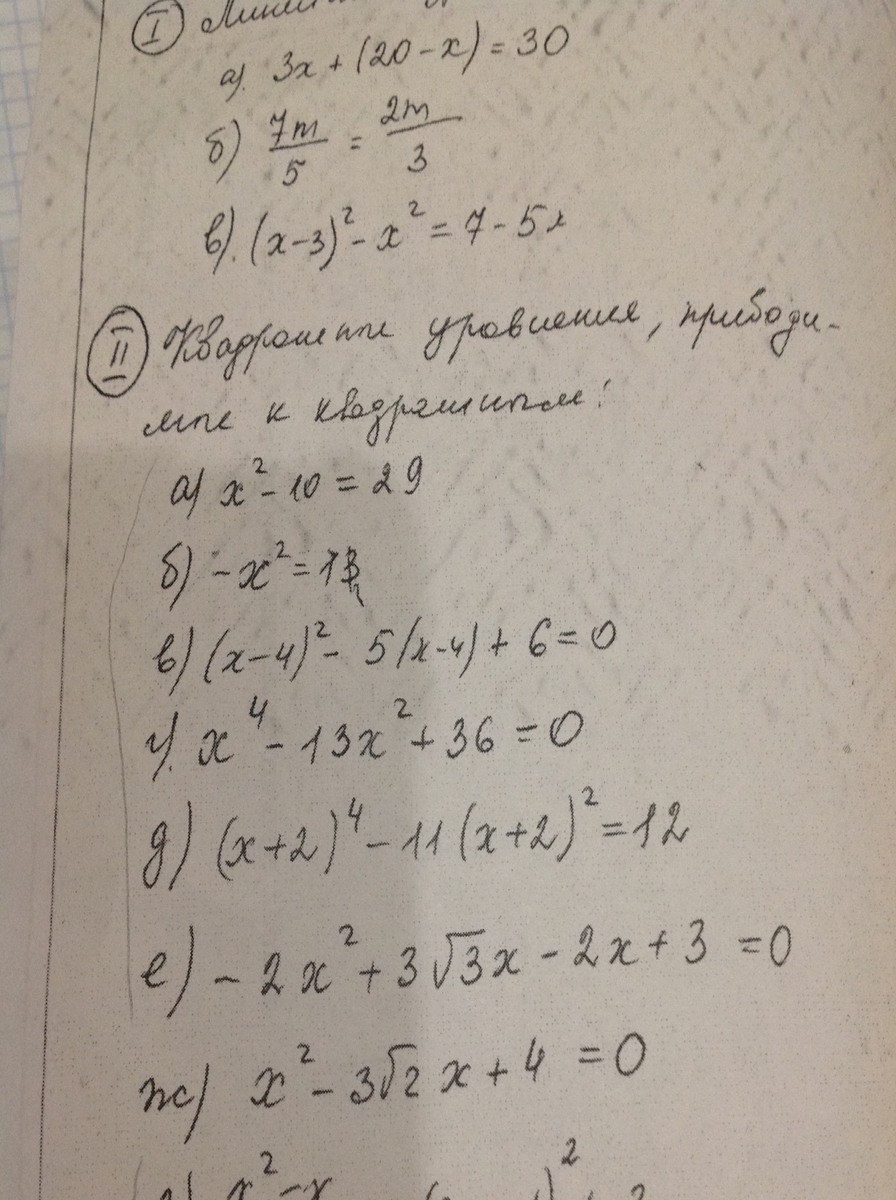 I Линей
а). 3x + (20 - x) = 30
б) 7m/5 = 2m/3
в). (x-3)² - x² = 7 - 5x
II Квадратные уровнения, приводи-
мые к квадратным:
а) x² - 10 = 29
б) -x² =
в) (x-4)² - 5(x-4) + 6 = 0
г). x⁴ - 13x² + 36 = 0
д) (x+2)⁴ - 11(x+2)² = 12
е) -2x² + 3√3x - 2x + 3 = 0
ж) x² - 3√2 x + 4 = 0